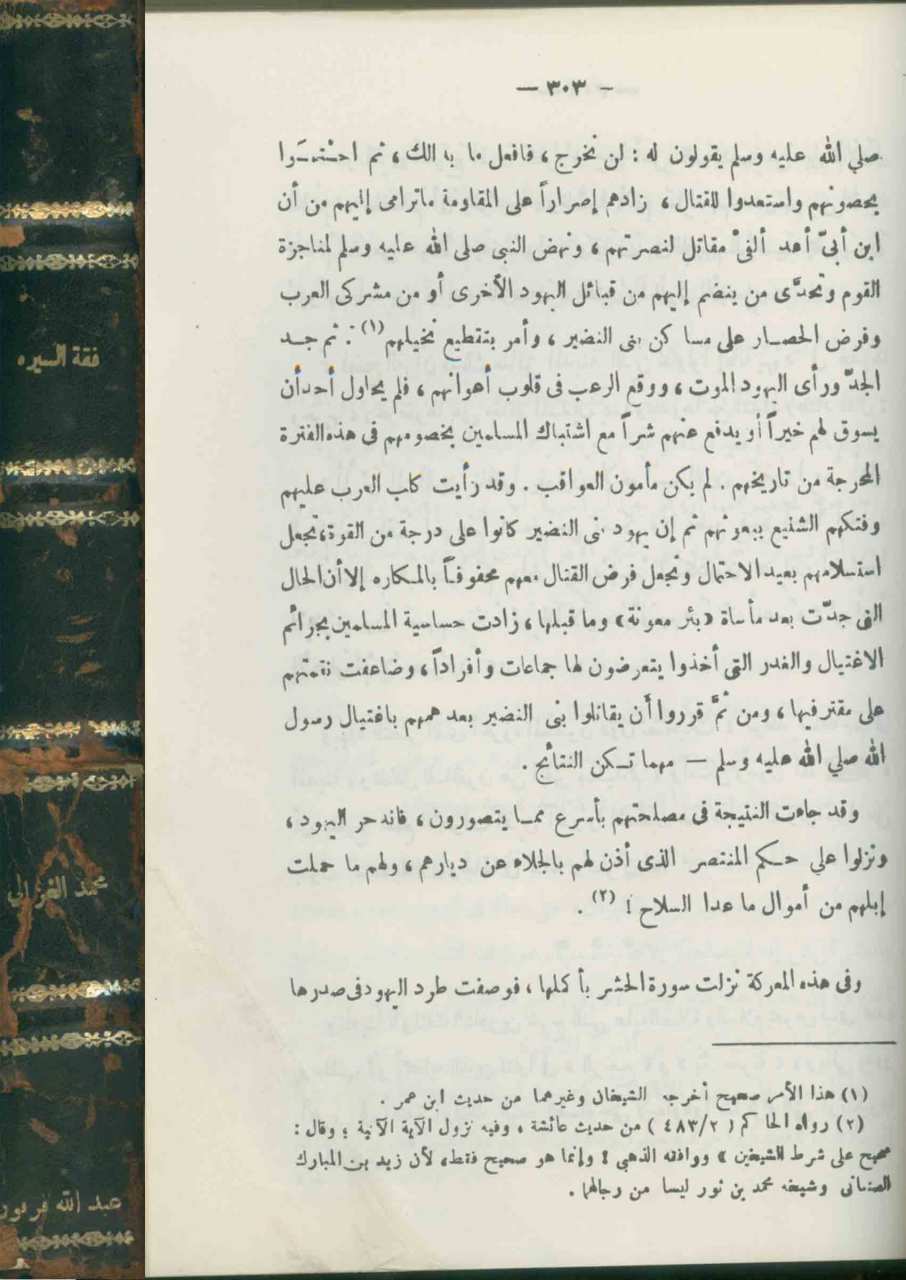 فقه السيره
محمد الغزالي
عبد الله فرفور
— ٣٠٣ —
صلي الله عليه وسلم يقولون له : لن نخرج ، فافعل ما بدالك ، ثم احتمــوا
بحصونهم واستعدوا للقتال ، زادهم إصراراً على المقاومة ماترامى إليهم من أن
ابن أبىّ أعد ألفىْ مقاتل لنصرتهم ، ونهض النبى صلى الله عليه وسلم لمناجزة
القوم وتحدَّى من ينضم إليهم من قبائل اليهود الأخرى أو من مشركى العرب
وفرض الحصــار على مساكن بنى النضير ، وأمر بتقطيع نخيلهم (١) . ثم جــد
الجدّ ورأى اليهود الموت ، ووقع الرعب فى قلوب أعوانهم ، فلم يحاول أحدأن
يسوق لهم خيراً أو يدفع عنهم شراً مع اشتباك المسلمين بخصومهم فى هذه الفترة
المحرجة من تاريخهم . لم يكن مأمون العواقب . وقد رأيت كلب العرب عليهم
وفتكهم الشنيع ببعوثهم ثم إن يهود بنى النضير كانوا على درجة من القوة، تجعل
استسلامهم بعيد الاحتمال وتجعل فرض القتال معهم محفوفــاً بالمـكاره إلاأن الحال
التى جدّت بعد مأساة «بئر معونة» وما قبلها ، زادت حساسية المسلمين بجرائم
الاغتيال والغدر التى أخذوا يتعرضون لها جماعات وأفراداً ، وضاعفت نقمتهم
على مقترفيها ، ومن ثَمَّ قرروا أن يقاتلوا بنى النضير بعد همهم باغتيال رسول
الله صلي الله عليه وسلم — مهما تـكن النتائج .
وقد جاءت النتيجة فى مصلحتهم بأسرع ممــا يتصورون ، فاندحر اليهود ،
ونزلوا علي حــكم المنتصر الذى أذن لهم بالجلاء عن ديارهم ، ولهم ما حملت
إبلهم من أموال ما عدا السلاح ! (٢) .
وفى هذه المعركة نزلت سورة الحشر بأكملها ، فوصفت طرد اليهود فى صدرها
(١) هذا الأمر صحيح أخرجه الشيخان وغيرهما من حديث ابن عمر .
(٢) رواه الحاكم ( ٤٨٣/٢ ) من حديث عائشة ، وفيه نزول الآية الآتية ؛ وقال :
صحيح على شرط الشيخين » ووافقه الذهبي ! وإنما هو صحيح فقط، لأن زيد بن المبارك
الصنعانى وشيخه محمد بن ثور ليسا من رجالهما .